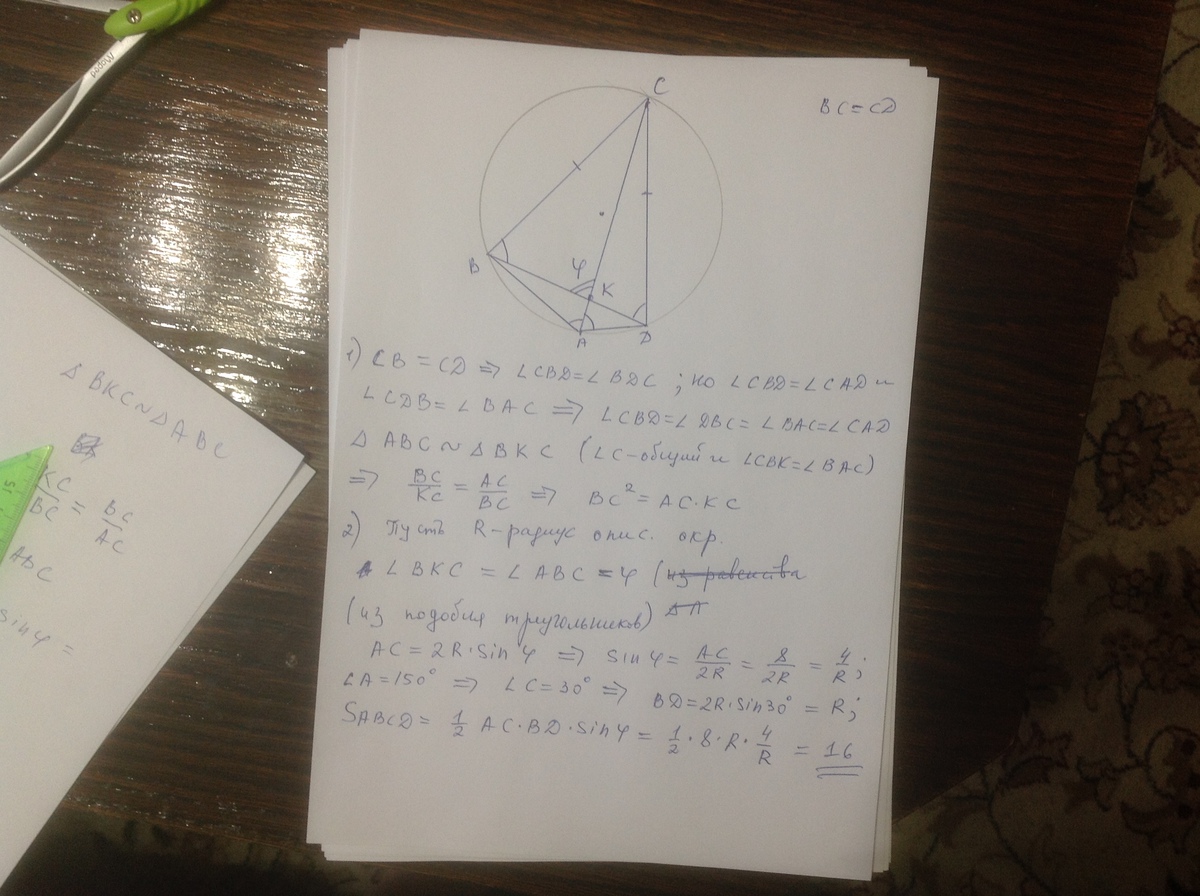 C
BC=CD
B
φ
K
A
D
1) CB = CD ⇒ ∠CBD=∠BDC ; но ∠CBD=∠CAD и
∠CDB=∠BAC ⇒ ∠CBD=∠DBC=∠BAC=∠CAD
△ABC ~ △BKC (∠C-общий и ∠CBK=∠BAC)
⇒ BC/KC = AC/BC ⇒ BC² = AC·KC
2) Пусть R-радиус опис. окр.
∠BKC = ∠ABC = φ (из равенства
(из подобия треугольников)
AC = 2R·sin φ ⇒ sin φ = AC/2R = 8/2R = 4/R;
∠A=150° ⇒ ∠C=30° ⇒ BD=2R·sin30° = R;
SABCD = 1/2 AC·BD·sin φ = 1/2·8·R·4/R = 16
△BKC ~ △ABC
KC/BC = BC/AC
ABC
sin φ =
15